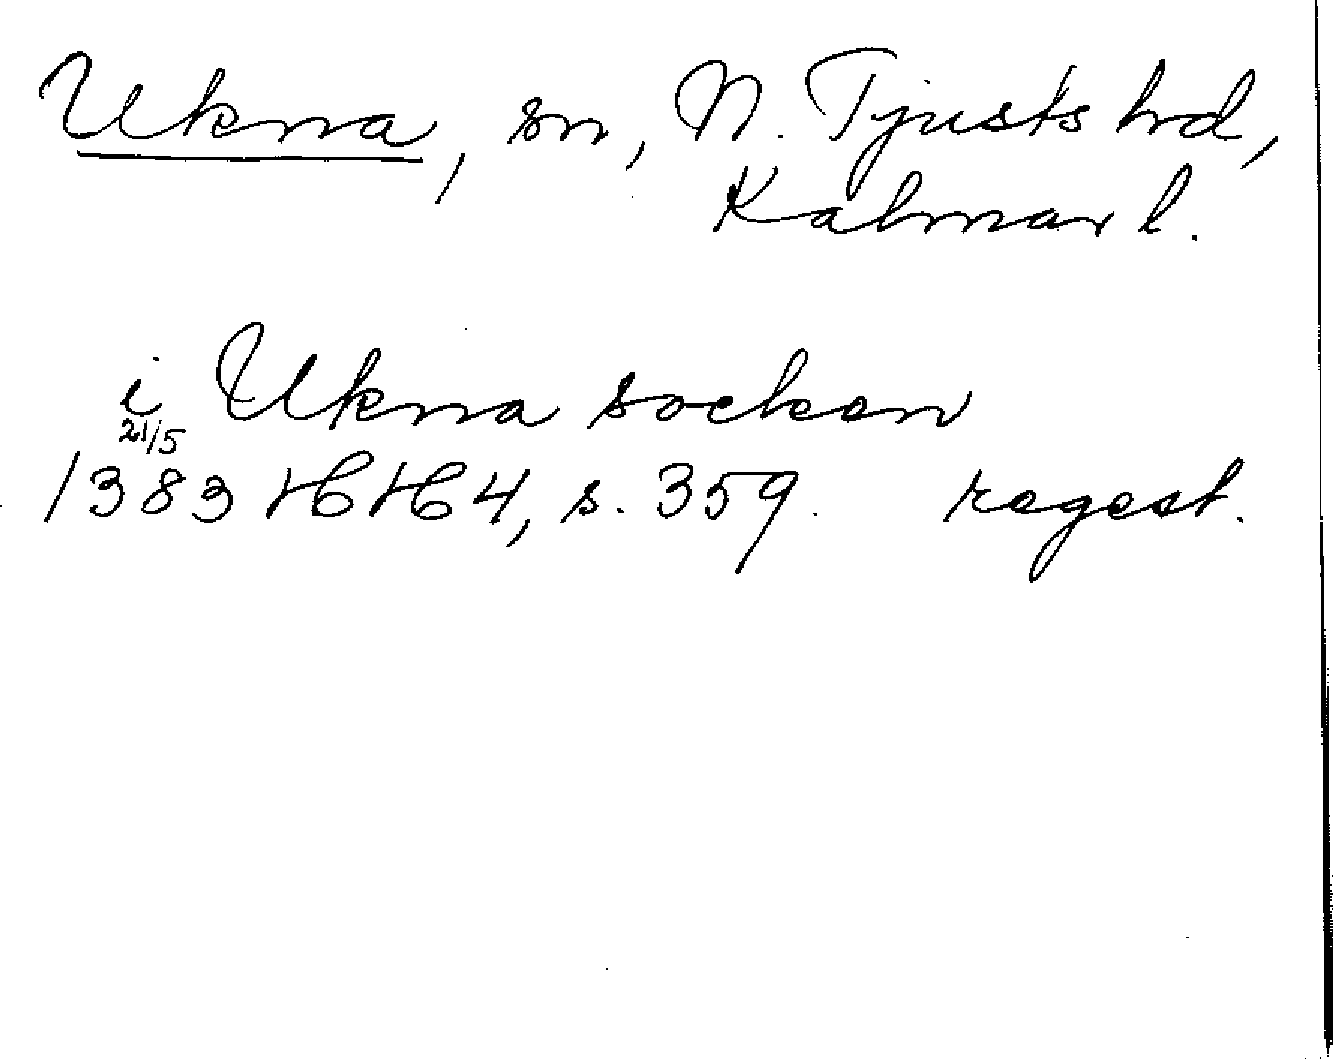 Ukna, sn, N. Tjusts hd,
Kalmar l.
i Ukna socken
21/5
1383 HH 4, s. 359. regest.